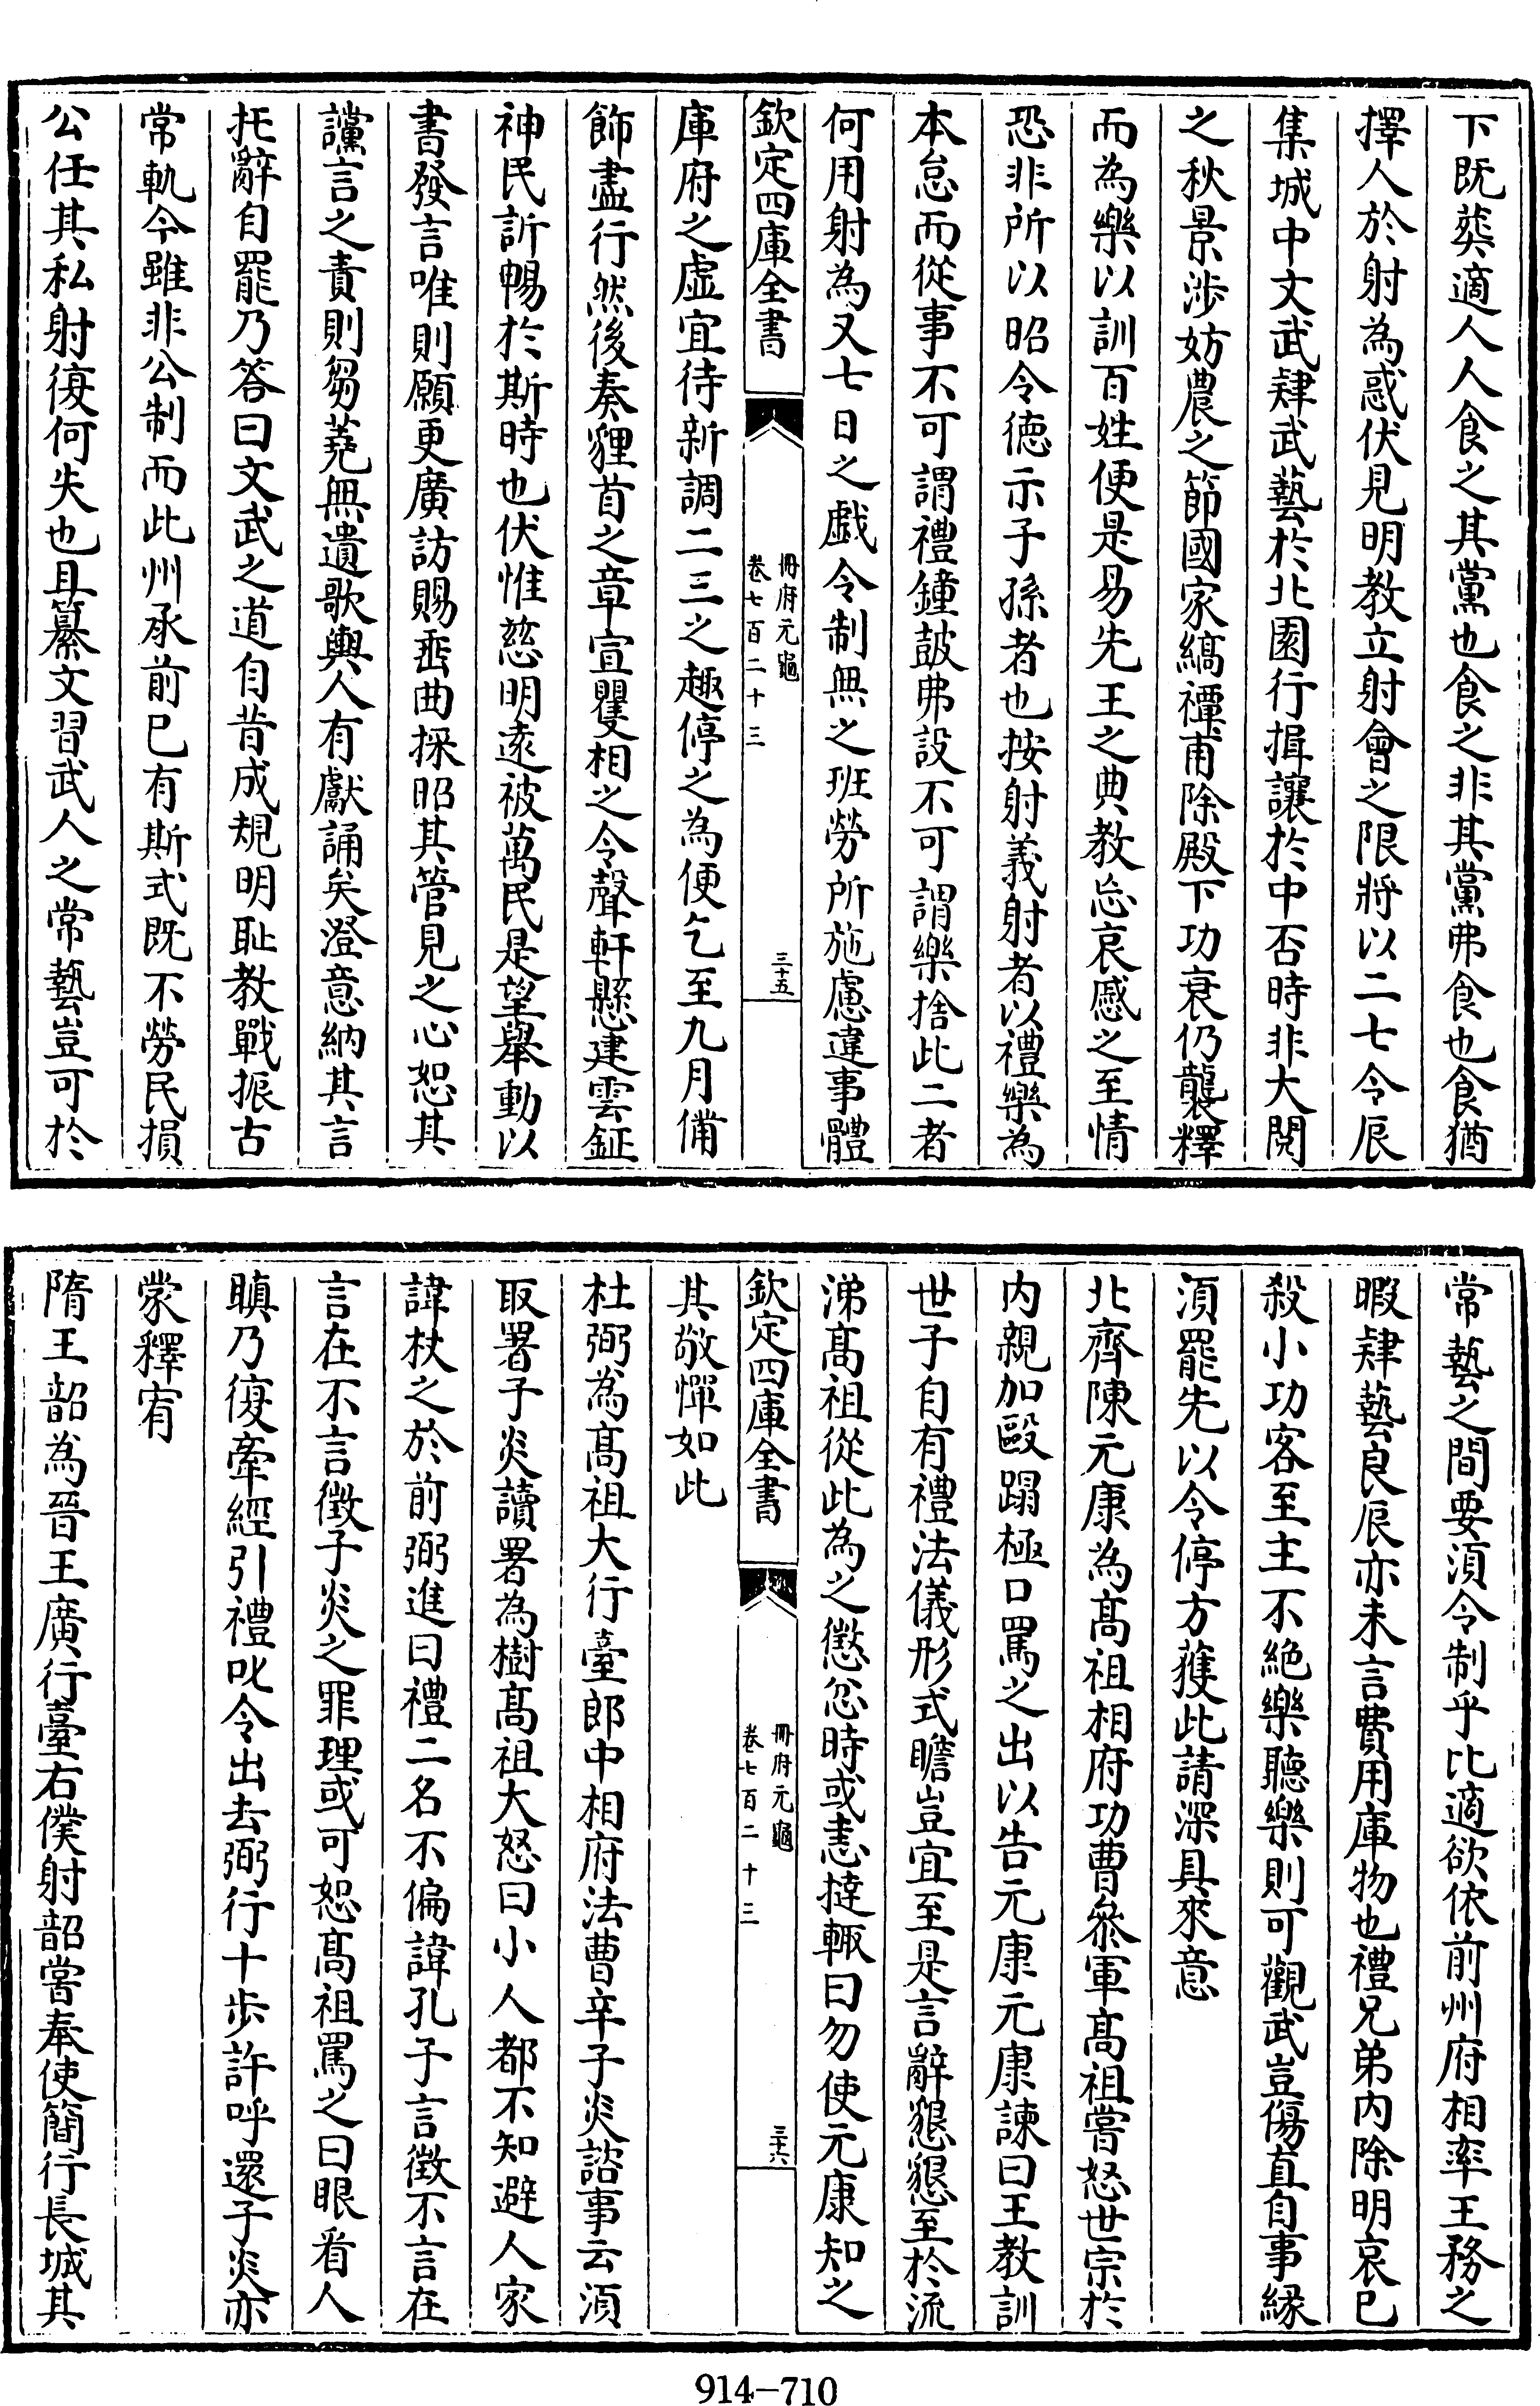 下既葬適人人食之其黨也食之非其黨弗食也食猶
擇人於射為惑伏見明教立射會之限將以二七令辰
集城中文武肄武藝於北園行揖讓於中否時非大閱
之秋景涉妨農之節國家縞禫甫除殿下功衰仍襲釋
而為樂以訓百姓便是易先王之典教忘哀慼之至情
恐非所以昭令徳示子孫者也按射義射者以禮樂為
本怠而從事不可謂禮鐘鼓弗設不可謂樂捨此二者
何用射為又七日之戯令制無之班勞所施慮違事體
欽定四庫全書
冊府元龜
卷七百二十三
三十五
庫府之虛宜待新調二三之趣停之為便乞至九月備
飾盡行然後奏貍首之章宣矍相之令聲軒懸建雲鉦
神民訢暢於斯時也伏惟慈明逺被萬民是望舉動以
書發言唯則願更廣訪賜垂曲採昭其管見之心恕其
讜言之責則芻蕘無遺歌輿人有獻誦矣澄意納其言
托辭自罷乃答曰文武之道自昔成規明恥教戰振古
常軌今雖非公制而此州承前已有斯式既不勞民損
公任其私射復何失也且纂文習武人之常藝豈可於
常藝之間要須令制乎比適欲依前州府相率王務之
暇肄藝良辰亦未言費用庫物也禮兄弟内除明哀已
殺小功客至主不絶樂聽樂則可觀武豈傷直自事縁
須罷先以令停方獲此請深具來意
北齊陳元康為髙祖相府功曹叅軍髙祖嘗怒世宗於
内親加毆蹋極口罵之出以告元康元康諫曰王教訓
世子自有禮法儀形式瞻豈宜至是言辭懇懇至於流
涕髙祖從此為之懲忿時或恚撻輙曰勿使元康知之
欽定四庫全書
冊府元龜
卷七百二十三
三十六
其敬憚如此
杜弼為髙祖大行臺郎中相府法曹辛子炎諮事云須
取署子炎讀署為樹髙祖大怒曰小人都不知避人家
諱杖之於前弼進曰禮二名不偏諱孔子言徴不言在
言在不言徴子炎之罪理或可恕髙祖罵之曰眼看人
瞋乃復牽經引禮叱令出去弼行十歩許呼還子炎亦
蒙釋宥
隋王韶為晉王廣行臺右僕射韶嘗奉使簡行長城其
914-710